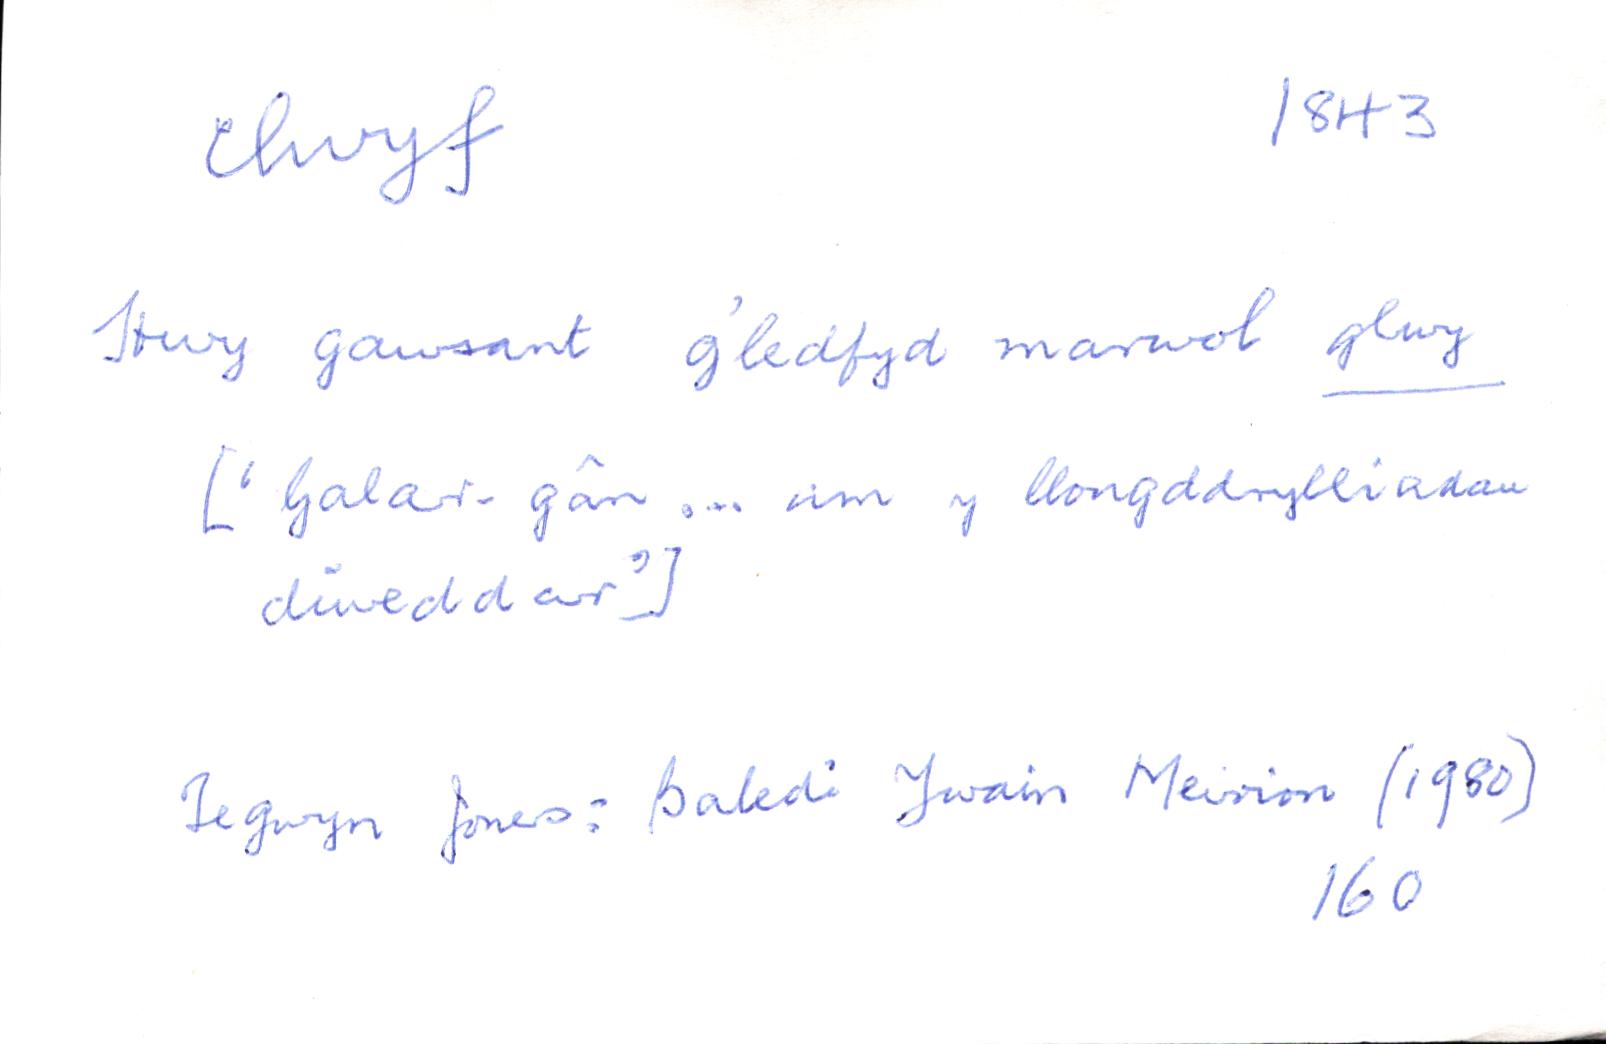 clwyf 1843
Hwy gawsant g'ledfyd marwol glwy
[‘Galar-gân ... am y llongddrylliadau
diweddar’]
Tegwyn Jones: Baledi Ywain Meirion (1980)
160